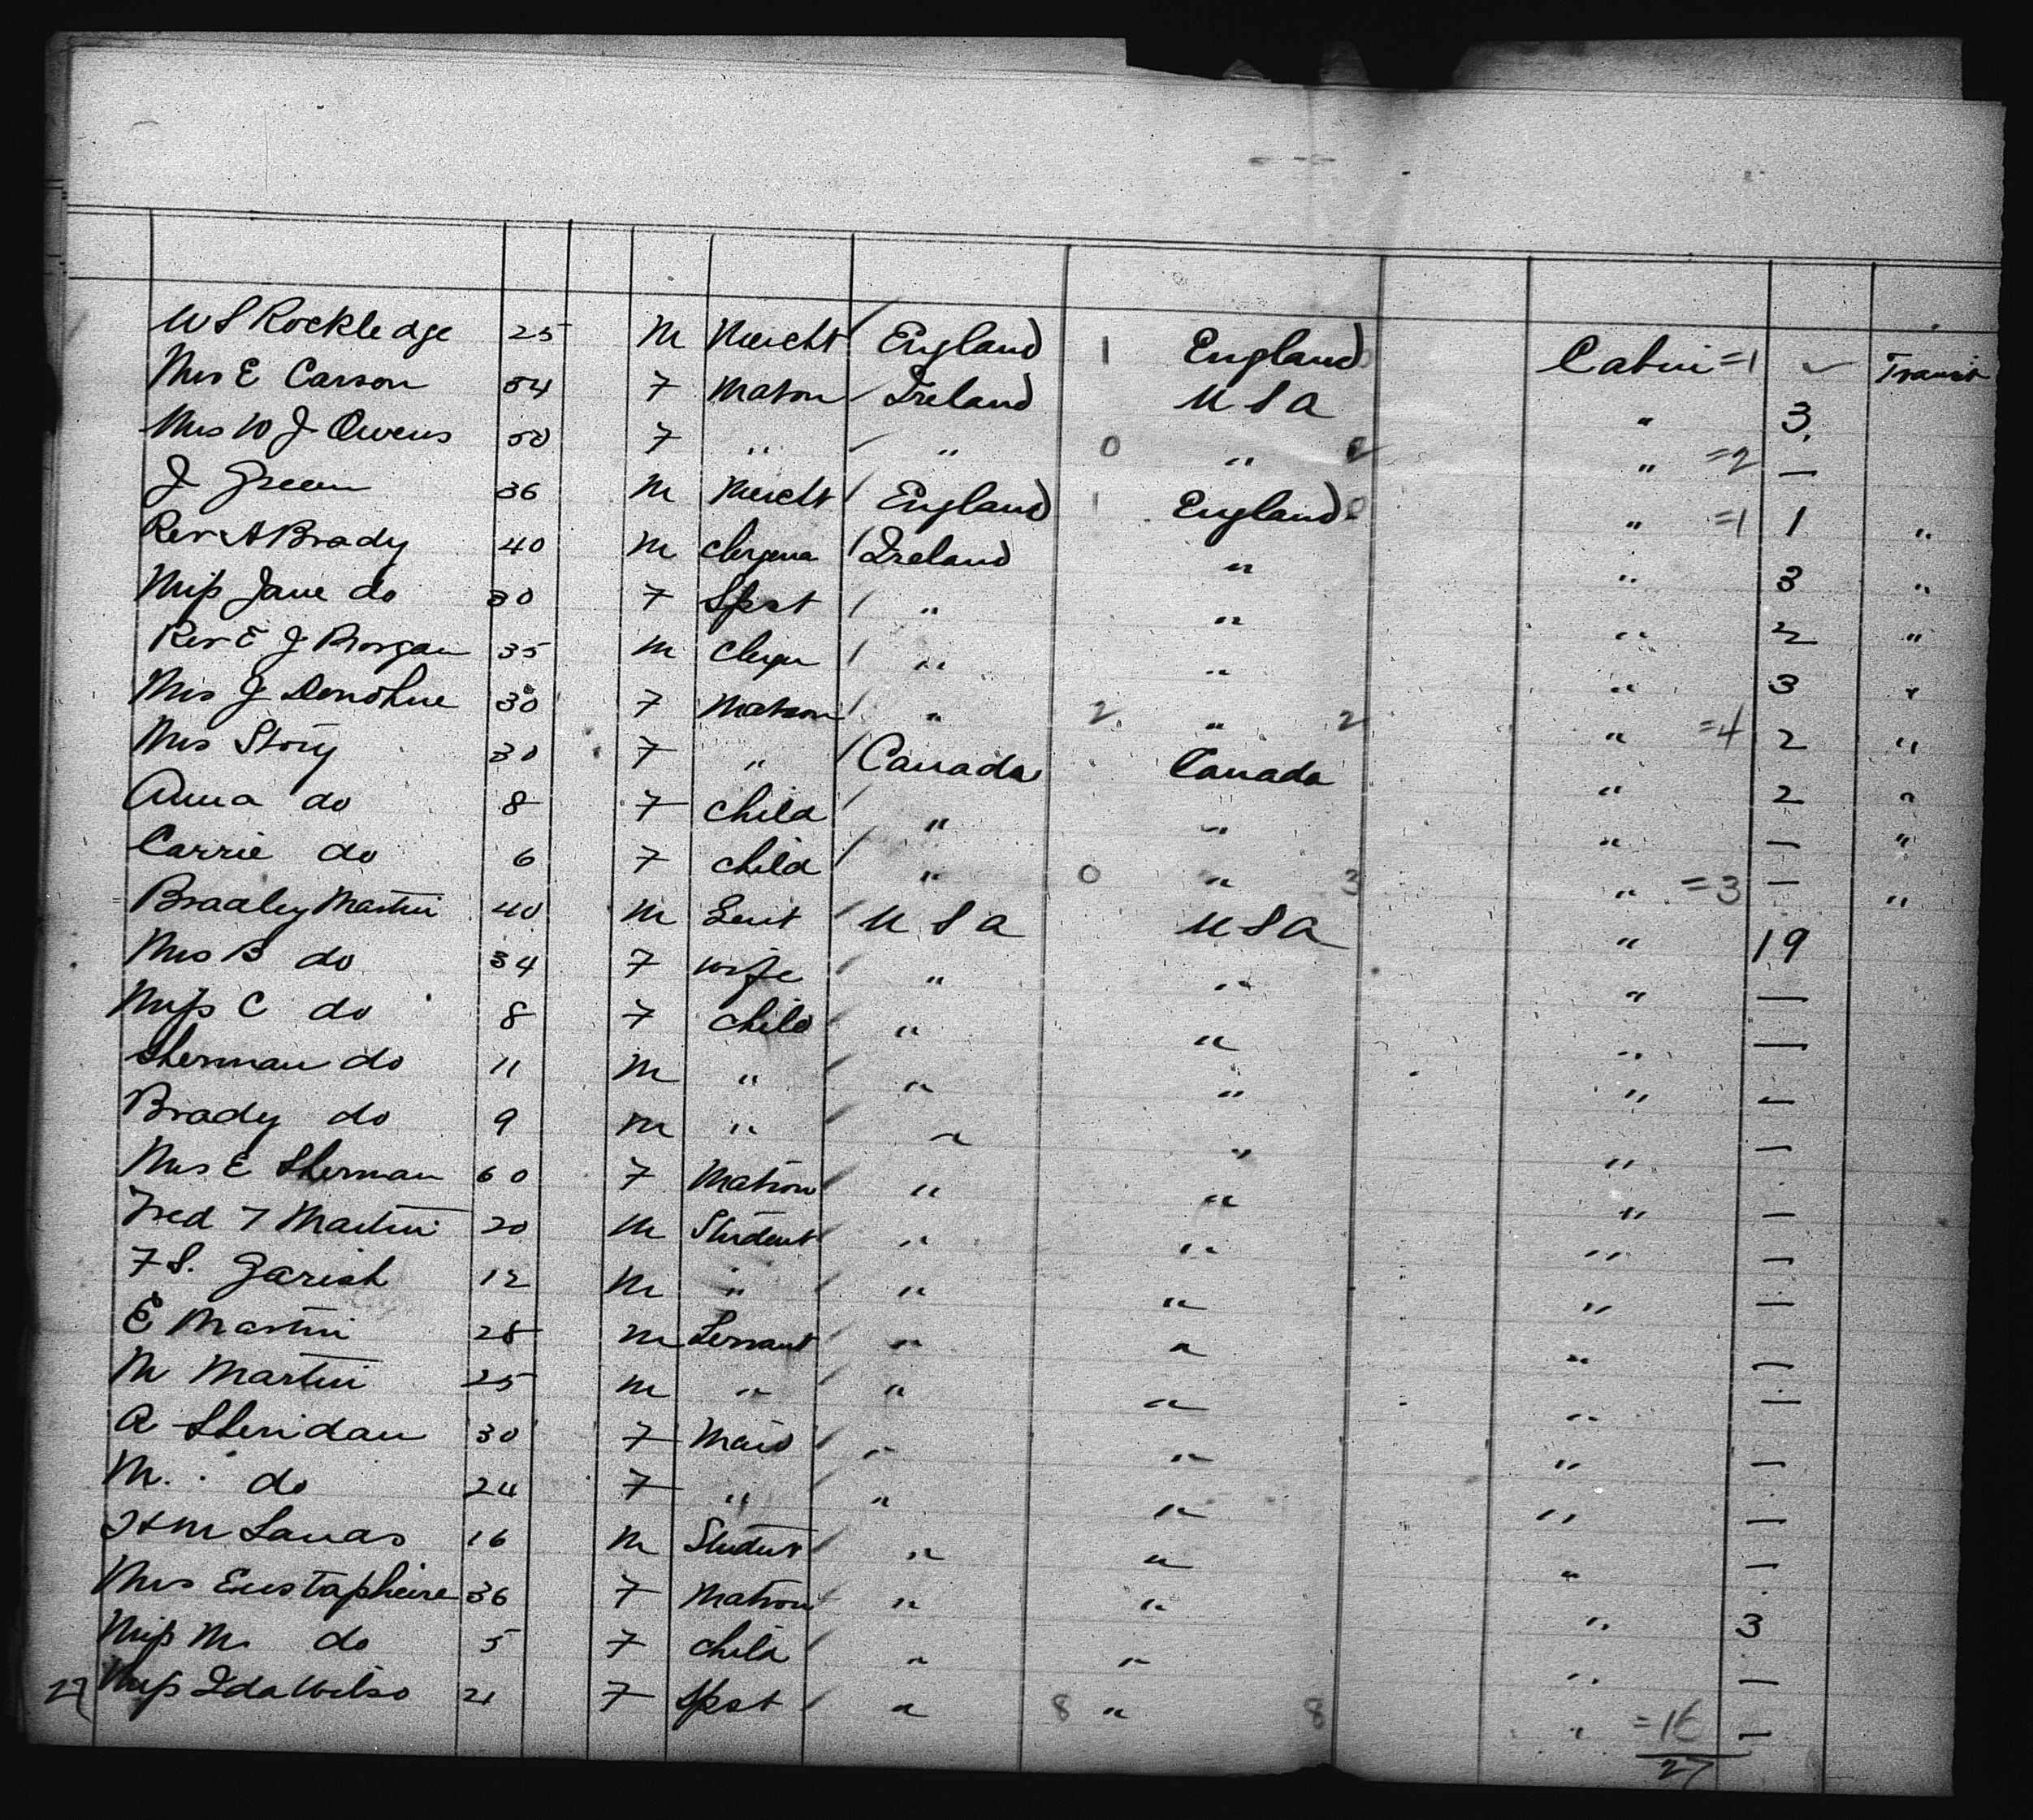 W S Rockledge 25 M Mercht / England 1 England 0 Cabin =1 ✓ Transit
Mrs E Carson 54 F Matron / Ireland U S A " 3
Mrs W J Owens 50 F " / " 0 " 2 " =2 —
J Green 36 M Mercht / England 1 England 0 " =1 1 "
Rev A Brady 40 M Clergm / Ireland " " 3 "
Miss Jane do 30 F Spst / " " " 2 "
Rev E J 35 M Clergm / " " " 3 "
Mrs J Donohue 30 F Matron / " 2 " 2 " =4 2 "
Mrs Story 30 F " / Canada Canada " 2 "
Anna do 8 F child / " " " — "
Carrie do 6 F child / " 0 " 3 " =3 — "
Bradley Martin 40 M Gent / U S A U S A " 19
Mrs B do 34 F wife / " " " —
Miss C do 8 F child / " " " —
Sherman do 11 M " / " " " —
Brady do 9 M " " " " —
Mrs E Sherman 60 F Matron / " " " —
Fred T Martin 20 M Student / " " " —
F S. Garish 12 M " / " " " —
E Martin 28 M Servant / " " " —
M Martin 25 M " / " " " —
A Sheridan 30 F Maid / " " " —
M. do 24 F " / " " " —
16 M Student / " " " —
Mrs Eustapheive 36 F Matron / " " " 3
Miss M. do 5 F child / " " " —
27 Miss Ida Wilso 21 F Spst / " 8 " 8 " =16 —
27